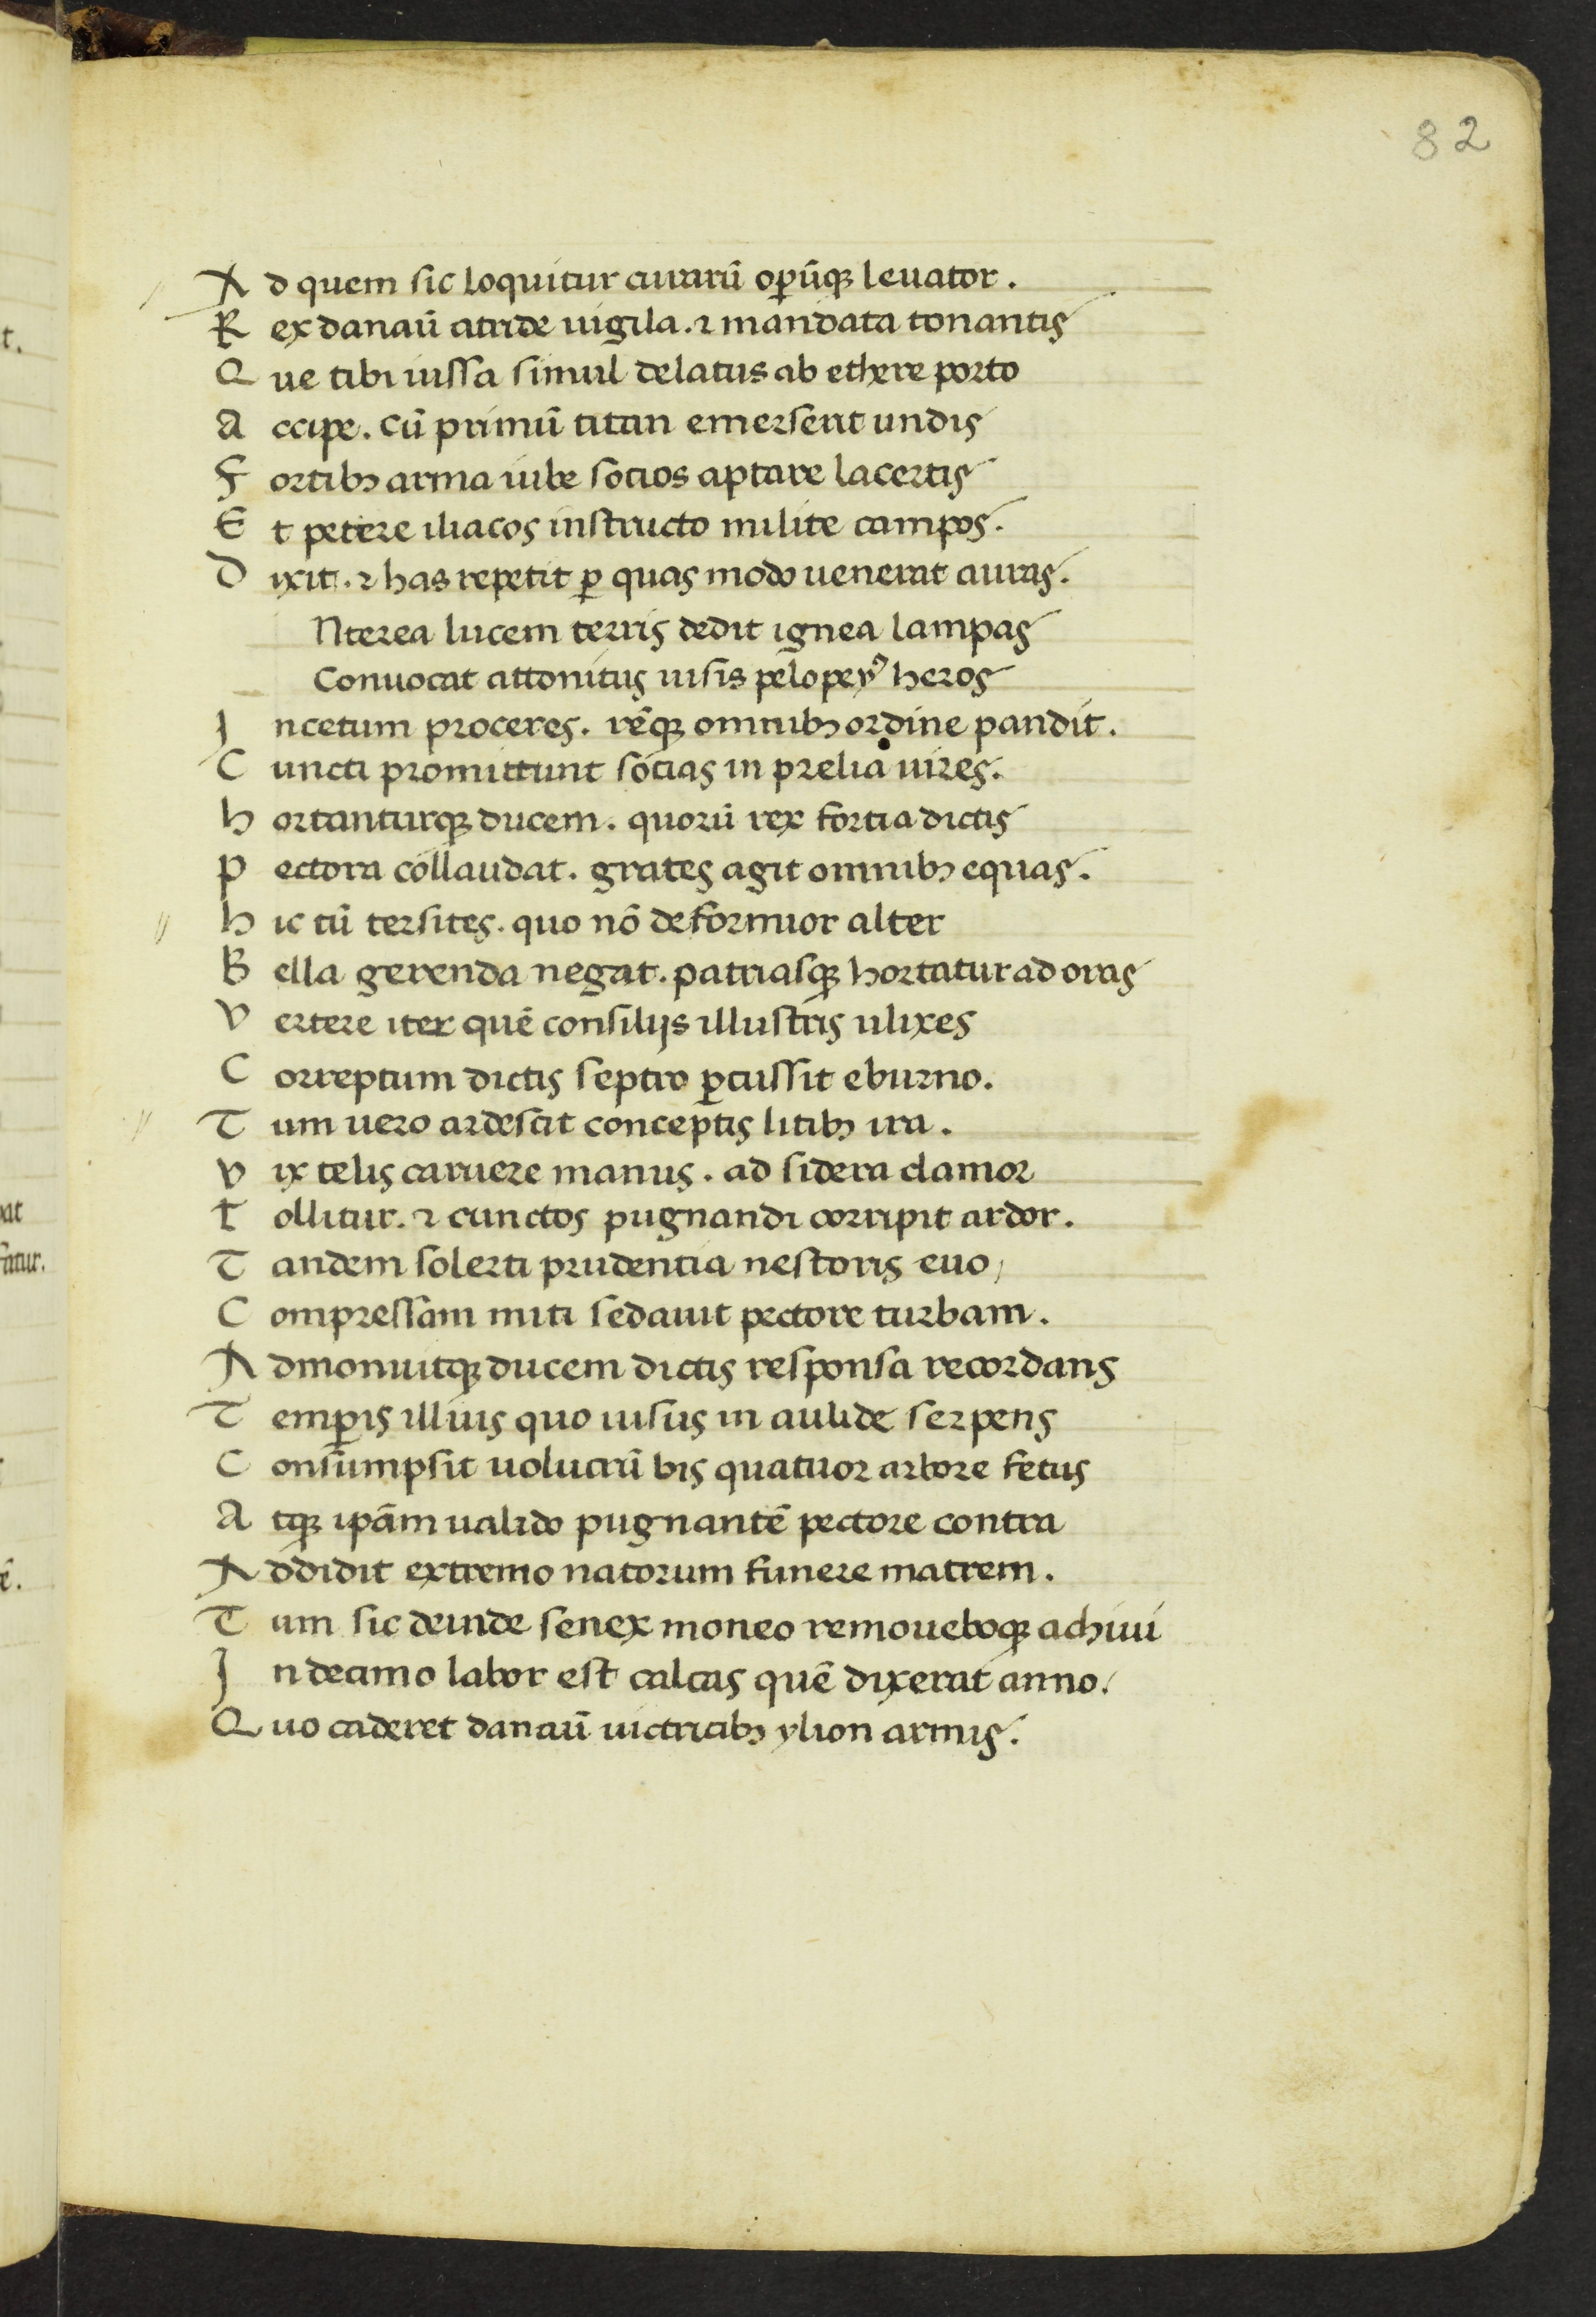 82
A d quem sic loquitur curarū op̄ūqꝫ leuator.
R ex danaū atride uigila. ⁊ mandata tonantis
Q ue tibi iussa simul delatus ab ethere porto
A ccipe. Cū primū titan emerserit undis
F ortibꝫ arma iube socios aptare lacertis
E t petere iliacos instructo milite campos.
D ixit. ⁊ has repetit ꝑ quas modo uenerat auras.
Nterea lucem terris dedit ignea lampas
Conuocat attonitus uisis pelopeyꝰ heros
I ncetum proceres. rēqꝫ omnibꝫ ordine pandit.
C uncti promittunt socias in prelia uires.
h ortanturqꝫ ducem. quorū rex fortia dictis
P ectora collaudat. grates agit omnibꝫ equas.
h ic tū tersites. quo nō deformior alter
B ella gerenda negat. patriasqꝫ hortatur ad oras
V ertere iter quē consilijs illustris ulixes
C orreptum dictis septro ꝑcussit eburno.
T um uero ardescit conceptis litibꝫ ira.
V ix telis caruere manus. ad sidera clamor
T ollitur. ⁊ cunctos pugnandi corripit ardor.
T andem solerti prudentia nestoris euo,
C ompressam miti sedauit pectore turbam.
A dmonuitqꝫ ducem dictis responsa recordans
T emꝑis illius quo uisus in aulide serpens
C onsumpsit uolucrū bis quatuor arbore fetus
A tqꝫ ip̄am ualido pugnantē pectore contra
A ddidit extremo natorum funere matrem.
T um sic deinde senex moneo remoueboqꝫ achiui
I n decimo labor est calcas quē dixerat anno.
Q uo caderet danaū uictricibꝫ ylion armis.